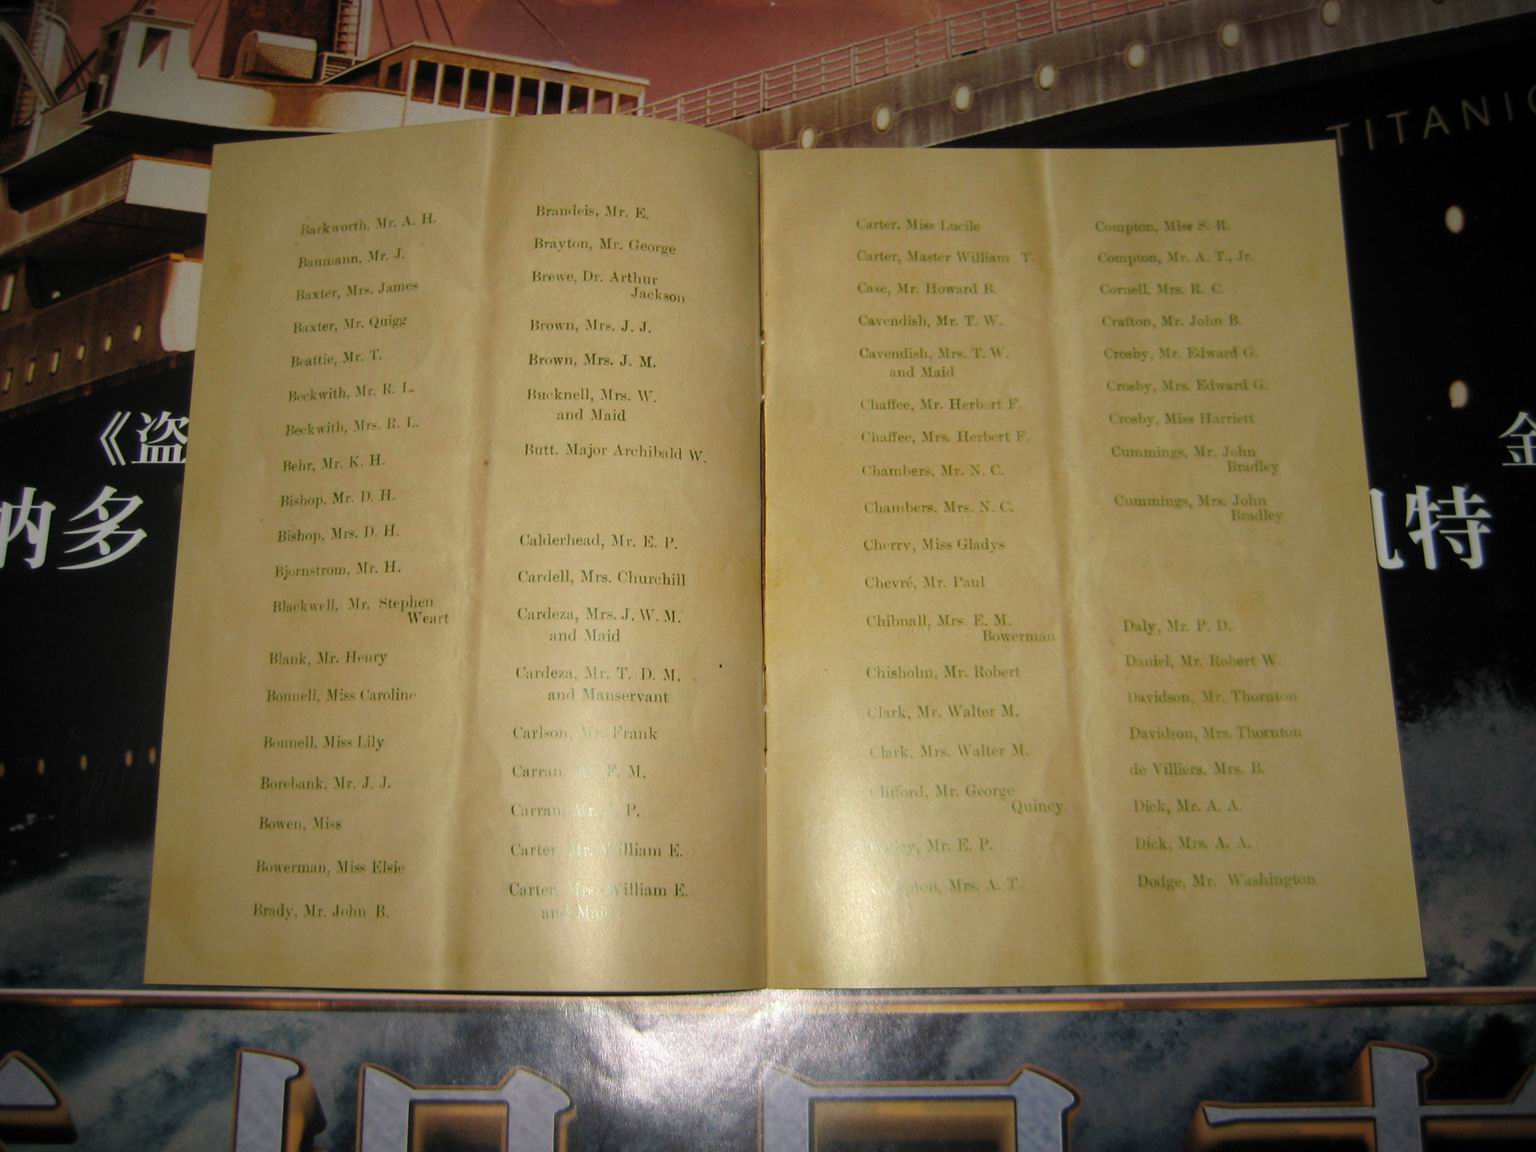 TITANIC
Barkworth, Mr. A. H.
Baumann, Mr. J.
Baxter, Mrs. James
Baxter, Mr. Quigg
Beattie, Mr. T.
Beckwith, Mr. R. L.
Beckwith, Mrs. R. L.
Behr, Mr. K. H.
Bishop, Mr. D. H.
Bishop, Mrs. D. H.
Bjornstrom, Mr. H.
Blackwell, Mr. Stephen
Weart
Blank, Mr. Henry
Bonnell, Miss Caroline
Bonnell, Miss Lily
Borebank, Mr. J. J.
Bowen, Miss
Bowerman, Miss Elsie
Brady, Mr. John B.
Brandeis, Mr. E.
Brayton, Mr. George
Brewe, Dr. Arthur
Jackson
Brown, Mrs. J. J.
Brown, Mrs. J. M.
Bucknell, Mrs. W.
and Maid
Butt, Major Archibald W.
Calderhead, Mr. E. P.
Cardell, Mrs. Churchill
Cardeza, Mrs. J. W. M.
and Maid
Cardeza, Mr. T. D. M.
and Manservant
Carlson, Mr. Frank
Carran, F. M.
Carran, P.
Carter, Mr. William E.
Carter, Mrs. William E.
and Maid
Carter, Miss Lucile
Carter, Master William T.
Case, Mr. Howard B.
Cavendish, Mr. T. W.
Cavendish, Mrs. T. W.
and Maid
Chaffee, Mr. Herbert F.
Chaffee, Mrs. Herbert F.
Chambers, Mr. N. C.
Chambers, Mrs. N. C.
Cherry, Miss Gladys
Chevré, Mr. Paul
Chibnall, Mrs. E. M.
Bowerman
Chisholm, Mr. Robert
Clark, Mr. Walter M.
Clark, Mrs. Walter M.
Clifford, Mr. George
Quincy
Mr. E. P.
Compton, Mrs. A. T.
Compton, Miss S. R.
Compton, Mr. A. T., Jr.
Cornell, Mrs. R. C.
Crafton, Mr. John B.
Crosby, Mr. Edward G.
Crosby, Mrs. Edward G.
Crosby, Miss Harriett
Cummings, Mr. John
Bradley
Cummings, Mrs. John
Bradley
Daly, Mr. P. D.
Daniel, Mr. Robert W.
Davidson, Mr. Thornton
Davidson, Mrs. Thornton
de Villiers, Mrs. B.
Dick, Mr. A. A.
Dick, Mrs. A. A.
Dodge, Mr. Washington
《盗
金
纳多
凯特